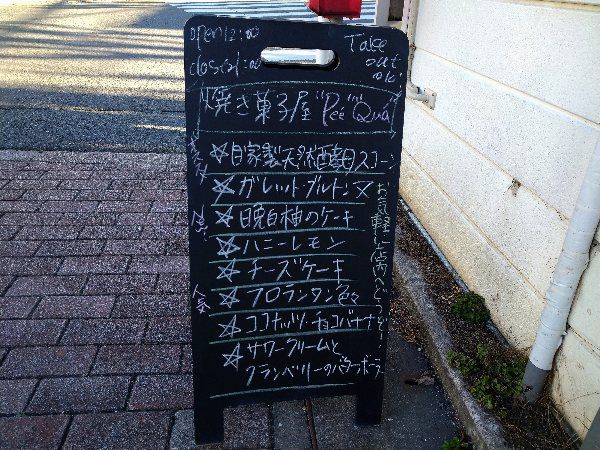 open12:00
close21:00
Take
out
ok!
焼き菓子屋"Pee"Qua
☆自家製天然酵母スコーン
☆ガレット・ブルトンヌ
☆晩白柚のケーキ
☆ハニーレモン
☆チーズケーキ
人気
☆フロランタン色々
☆ココナッツ・チョコバナナ
☆サワークリームと
クランベリーのパウンドケーキ
お気軽に店内へどうぞー